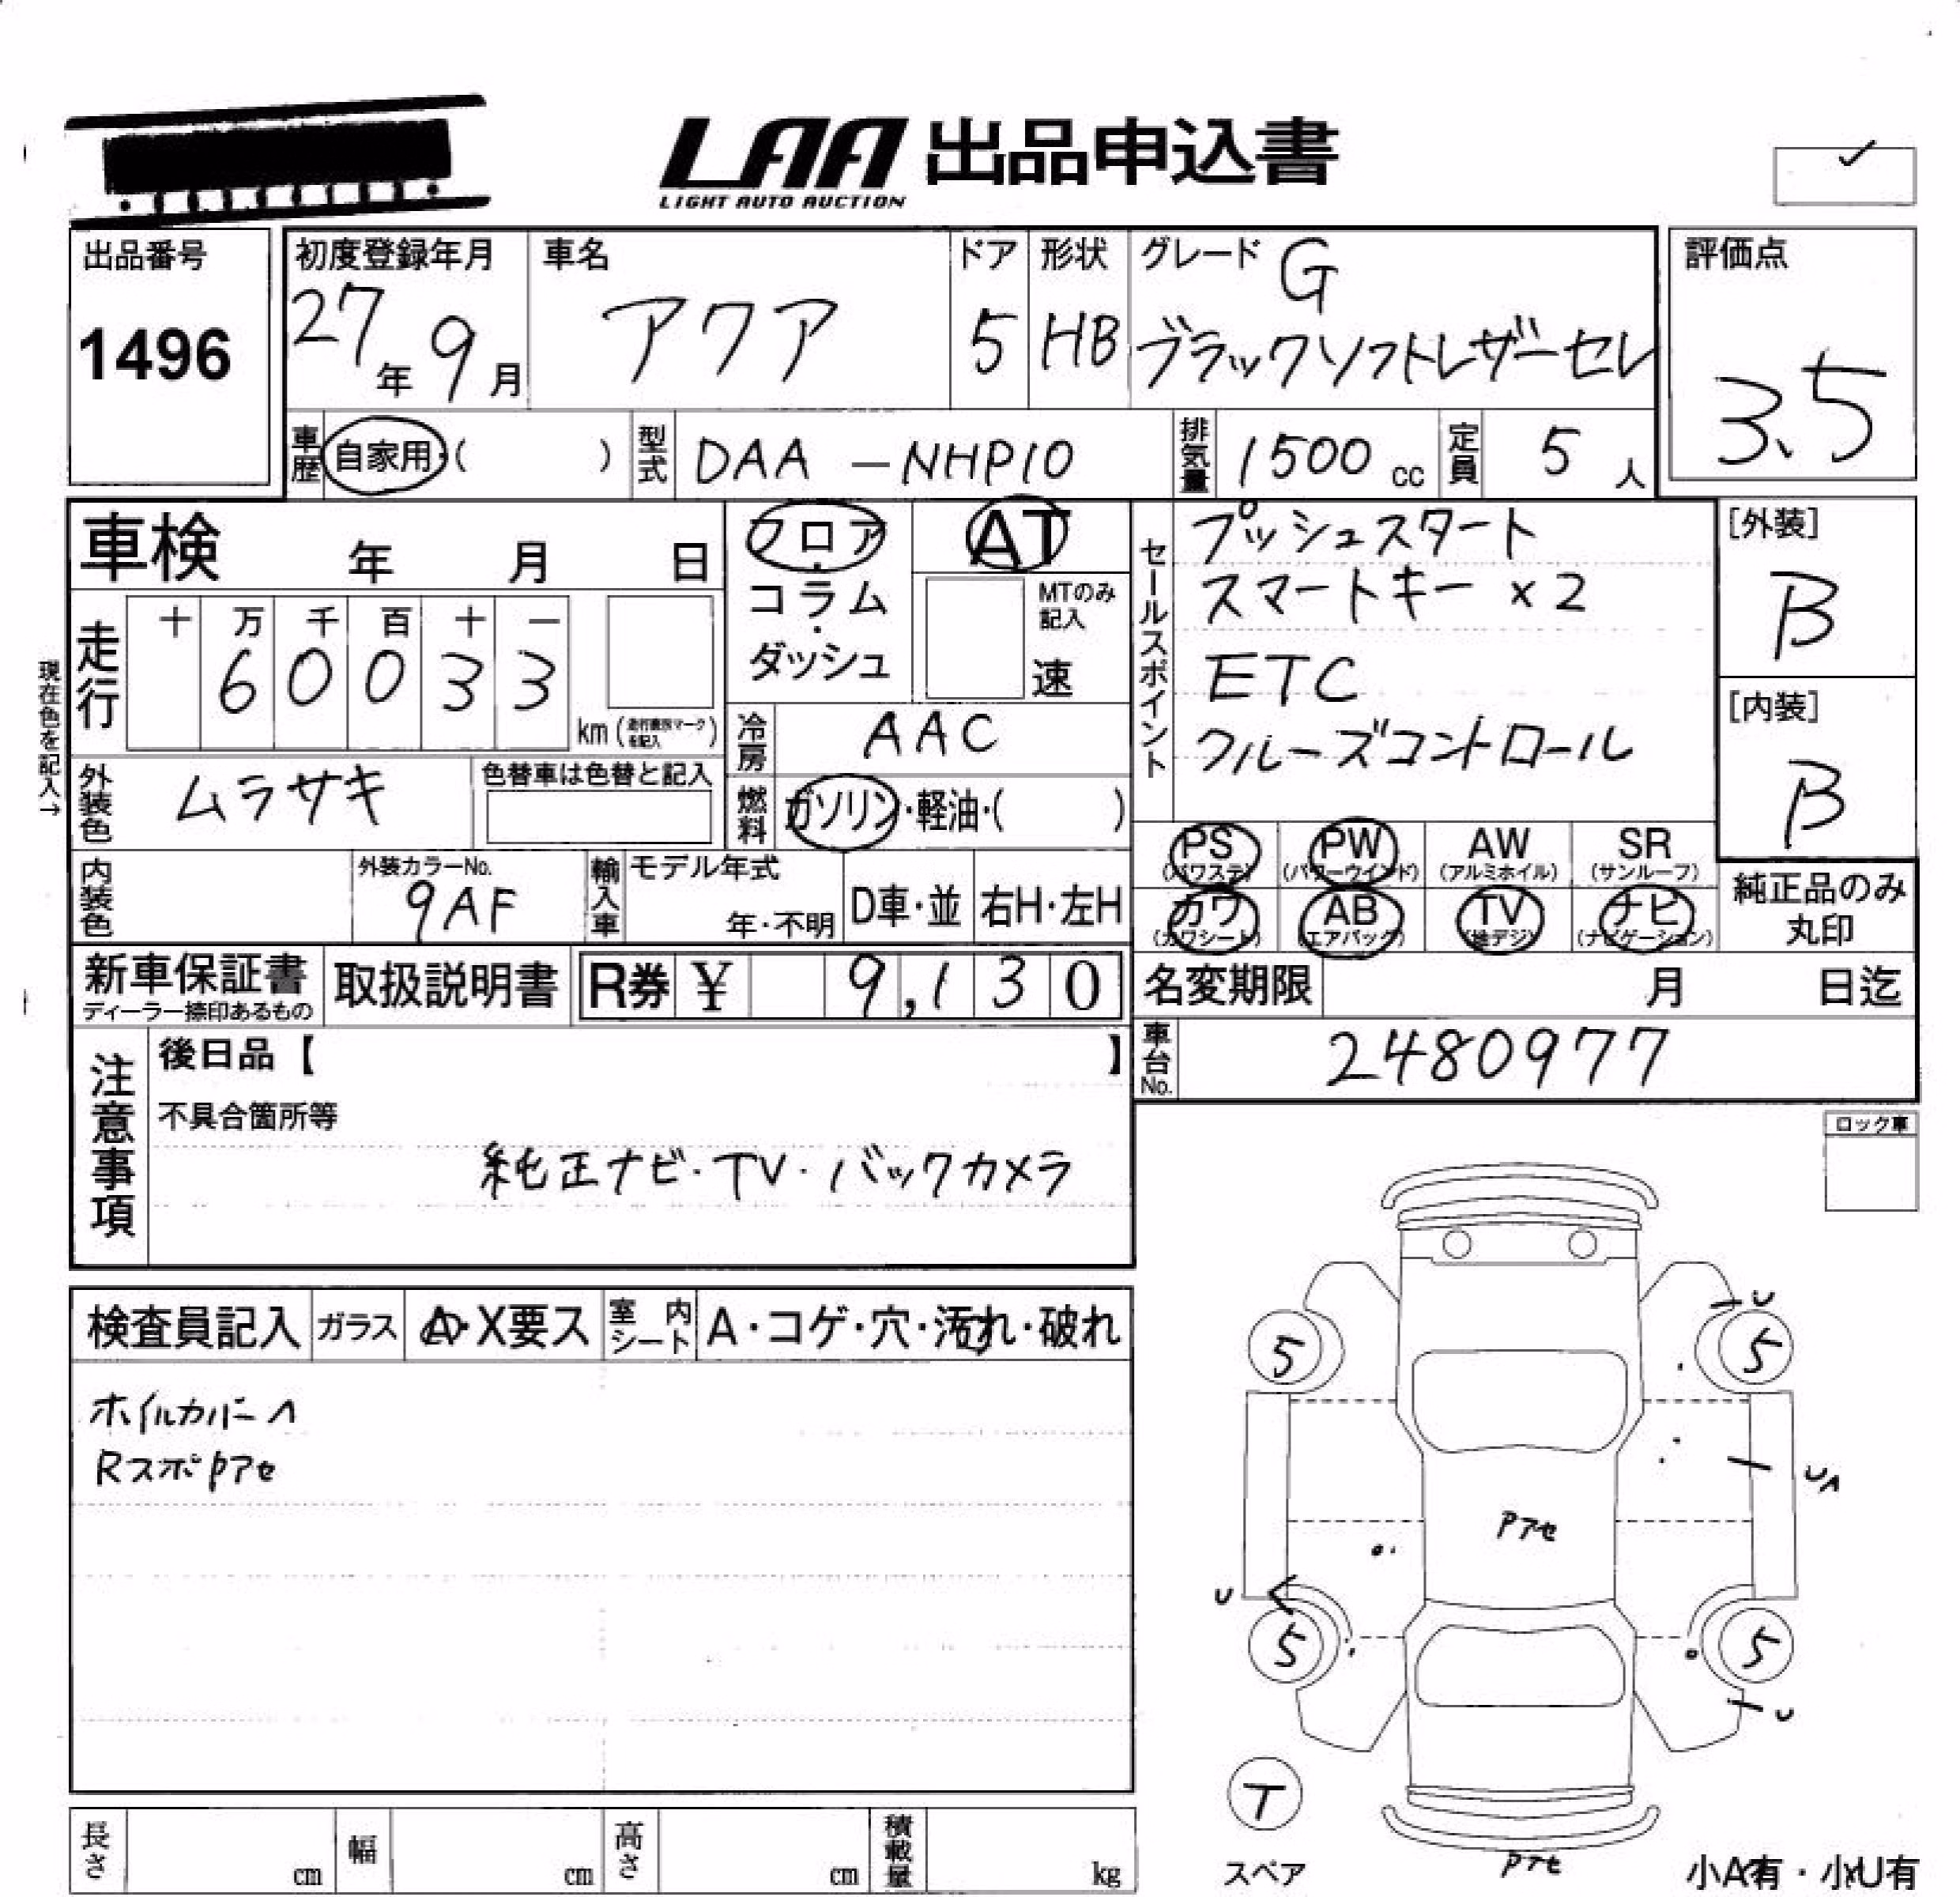 LAA 出品申込書
LIGHT AUTO AUCTION
出品番号
1496
初度登録年月
27年 9月
車名
アクア
ドア
5
形状
HB
グレード G
ブラックソフトレザーセレ
評価点
3.5
車歴 自家用・( )
型式 DAA-NHP10
排気量 1500 cc
定員 5 人
車検 年 月 日
走行
十 万 千 百 十 一
6 0 0 3 3
km (走行直示マークを記入)
現在色を記入→
外装色 ムラサキ
色替車は色替と記入
内装色
外装カラーNo.
9AF
フロア・コラム・ダッシュ
AT
MTのみ記入
速
冷房 AAC
燃料 ガソリン・軽油・( )
輸入車
モデル年式
年・不明
D車・並
右H・左H
セールスポイント
プッシュスタート
スマートキー ×2
ETC
クルーズコントロール
[外装]
B
[内装]
B
PS (パワステ)
PW (パワーウインド)
AW (アルミホイル)
SR (サンルーフ)
カワ (カワシート)
AB (エアバッグ)
TV (地デジ)
ナビ (ナビゲーション)
純正品のみ
丸印
新車保証書
ディーラー捺印あるもの
取扱説明書
R券 ¥ 9,130
名変期限 月 日迄
車台No. 2480977
注意事項
後日品【 】
不具合箇所等
純正ナビ・TV・バックカメラ
ロック車
検査員記入
ガラス A・X要ス
室内シート A・コゲ・穴・汚れ・破れ
ホイルカバーA
RスポPアセ
U
5
5
UA
Pアセ
U
5
5
U
T
スペア
Pアセ
小A有・小U有
長さ cm
幅 cm
高さ cm
積載量 kg